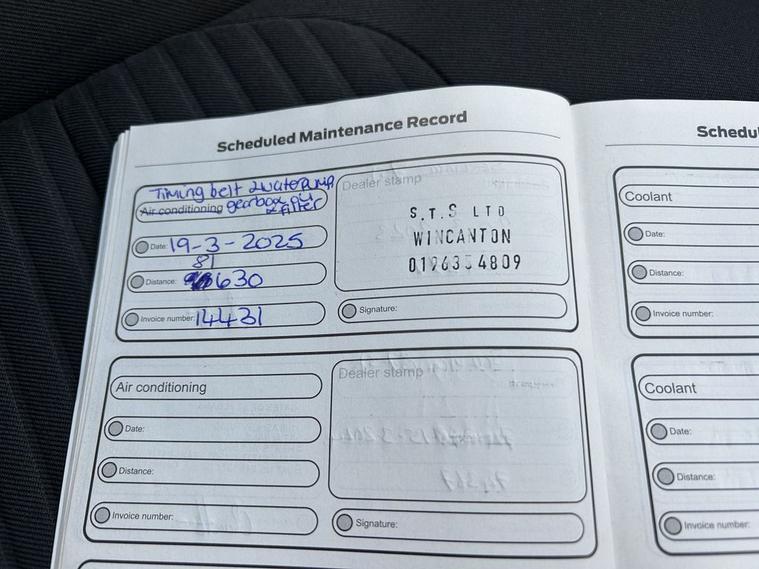 Scheduled Maintenance Record
Timing belt & water pump
Air conditioning gearbox oil
& filter
Date: 19-3-2025
81
Distance: 630
Invoice number: 14431
Dealer stamp
S.T.S LTD
WINCANTON
01963 34809
Signature:
Air conditioning
Date:
Distance:
Invoice number:
Dealer stamp
Signature:
Schedu
Coolant
Date:
Distance:
Invoice number:
Coolant
Date:
Distance:
Invoice number: